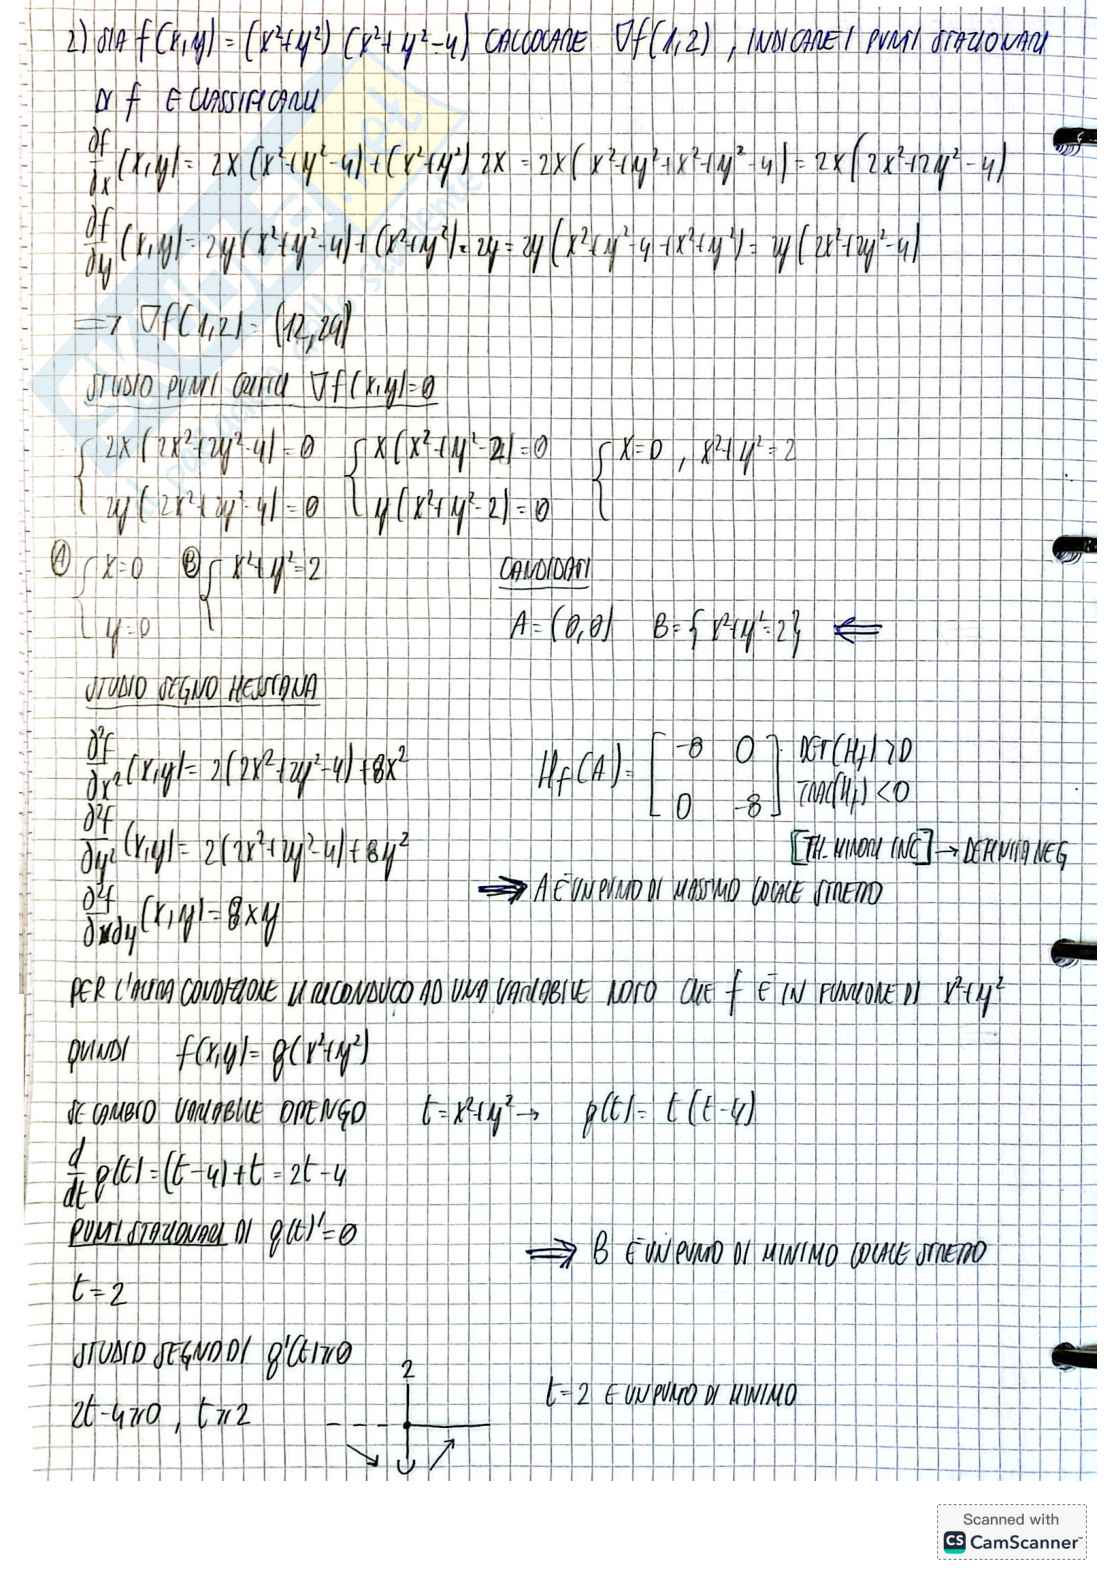 2) SIA f(x,y) = (x²+y²) (x²+y²-4) CALCOLARE ∇f(1,2) , INDICARE I PUNTI STAZIONARI
DI f E CLASSIFICARLI
∂f/∂x (x,y) = 2x (x²+y²-4) + (x²+y²) 2x = 2x (x²+y²+x²+y²-4) = 2x (2x²+2y²-4)
∂f/∂y (x,y) = 2y (x²+y²-4) + (x²+y²) · 2y = 2y (x²+y²-4+x²+y²) = 2y (2x²+2y²-4)
=> ∇f(1,2) = (12,24)
STUDIO PUNTI CRITICI ∇f(x,y)=0
{ 2x (2x²+2y²-4) = 0 { x (x²+y²-2) = 0 { x=0 , x²+y²=2
2y (2x²+2y²-4) = 0 y (x²+y²-2) = 0
Ⓐ { x=0 Ⓑ { x²+y²=2 CANDIDATI
y=0 A = (0,0) B = { x²+y²=2} ⇐
STUDIO SEGNO HESSIANA
∂²f/∂x² (x,y) = 2(2x²+2y²-4) + 8x² Hf(A) = [ -8 0 DET(Hf) >0
0 -8 ] TRAC(Hf) <0
∂²f/∂y² (x,y) = 2(2x²+2y²-4) + 8y² [TH. MINORI INC] → DEFINITA NEG
⇒ A È UN PUNTO DI MASSIMO LOCALE STRETTO
∂²f/∂x∂y (x,y) = 8xy
PER L'ALTRA CONDIZIONE MI RICONDUCO AD UNA VARIABILE NOTO CHE f È IN FUNZIONE DI x²+y²
QUINDI f(x,y) = g(x²+y²)
SE CAMBIO VARIABILE OTTENGO t = x²+y² → g(t) = t (t-4)
d/dt g(t) = (t-4)+t = 2t-4
PUNTI STAZIONARI DI g(t)'=0
⇒ B È UN PUNTO DI MINIMO LOCALE STRETTO
t=2
STUDIO SEGNO DI g'(t)≥0
2
t=2 È UN PUNTO DI MINIMO
2t-4≥0 , t≥2
Scanned with
CS CamScanner